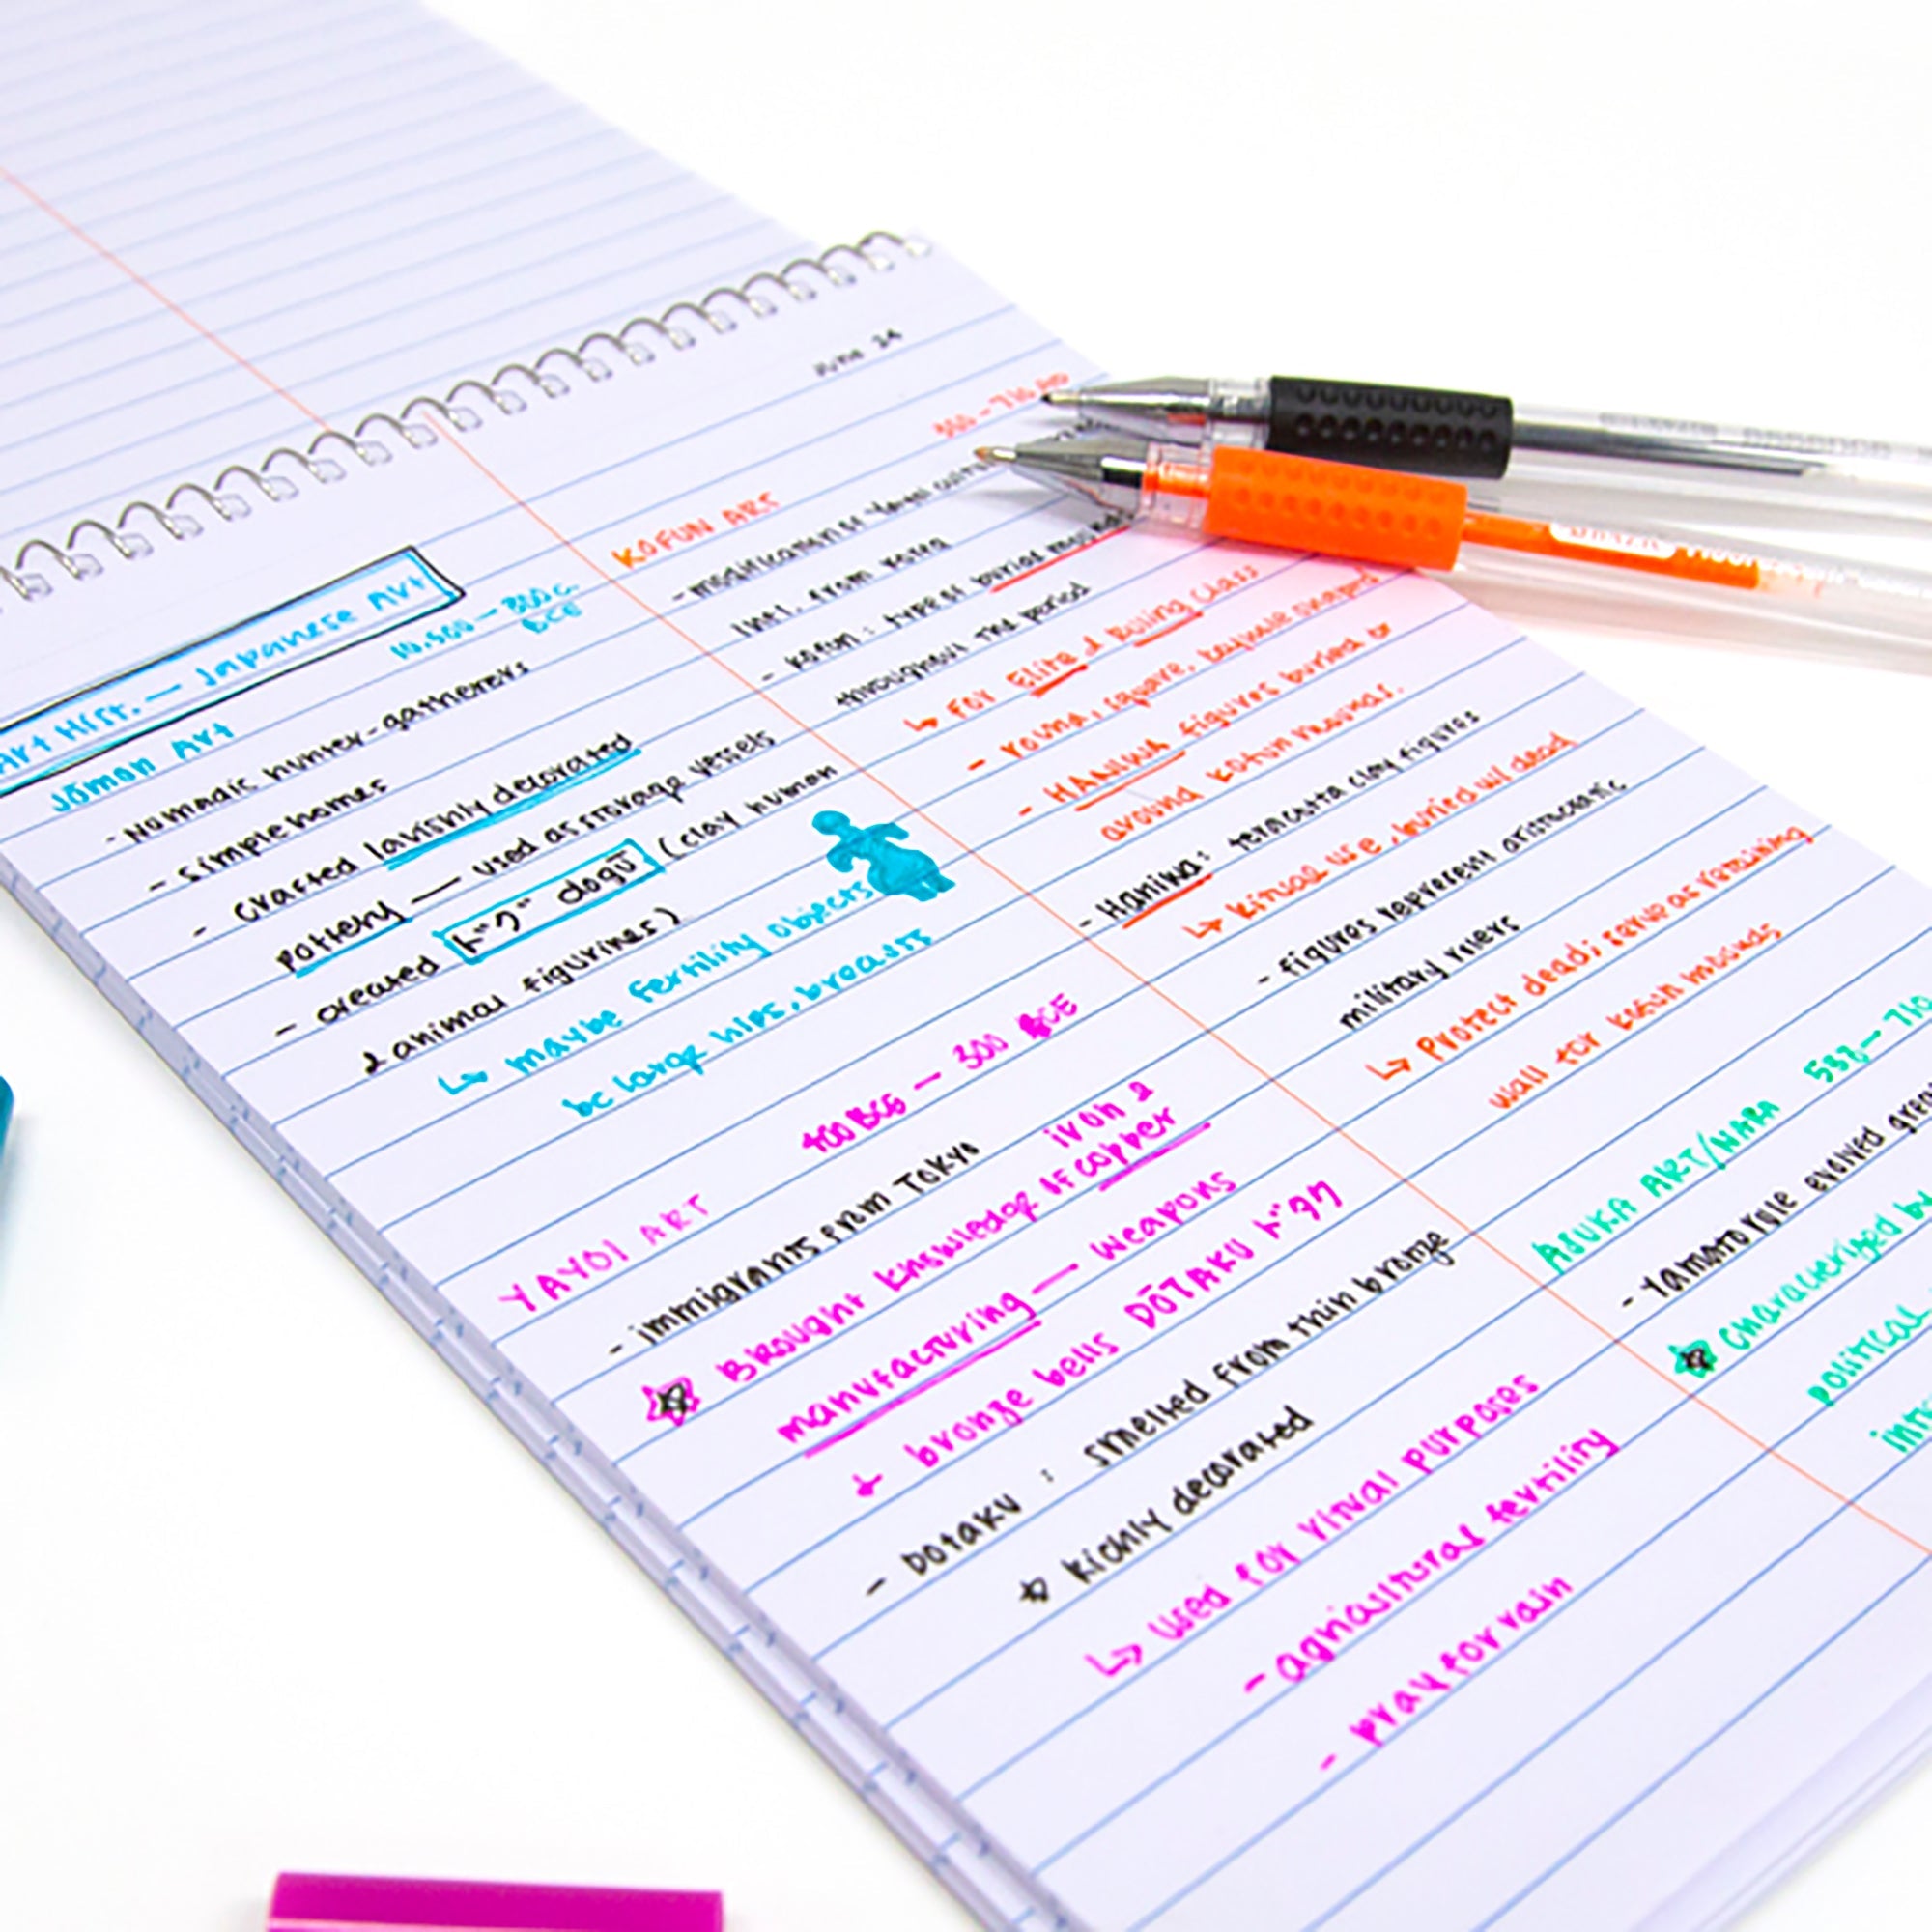 Art Hist. — Japanese Art
Jōmon Art
10,500 — 300
BCE
- Nomadic hunter-gatherers
- simple homes
- crafted lavishly decorated
pottery — used as storage vessels
- created ドグ dogū (clay human
& animal figurines)
↳ maybe fertility objects
bc large hips, breasts
YAYOI ART
400 BCE — 300 BCE
- immigrants from Tokyo
iron &
☆ Brought knowledge of copper
manufacturing — weapons
↓ bronze bells DŌTAKU
- Dotaku : smelted from thin bronze
☆ Richly decorated
↳ used for ritual purposes
- agricultural fertility
- pray for rain
June 24
KOFUN ARS
300 - 710 AD
- modification of Yayoi
Intl. from
- kofun: type of burial
throughout the period
↳ For Elite & Ruling Class
- round, square, keyhole shaped
- HANIWA figures buried or
around kofun mounds.
- Haniwa: terracotta clay figures
↳ Ritual use, buried w/ dead
- figures represent aristocratic
military rulers
↳ Protect dead; serve as retaining
wall for kofun mounds
ASUKA ART/NARA
710
- Yamato rule evolved
☆ Characterized by
political